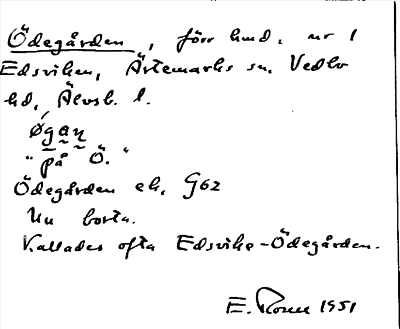 Ödegården, förr hmd. nr 1
Edsviken, Ärtemarks sn, Vedbo
hd, Älvsb. l.
Øgaṇ
"på Ö."
Ödegården ek. G62
Nu borta.
Kallades ofta Edsvike-Ödegården.
E. 1951